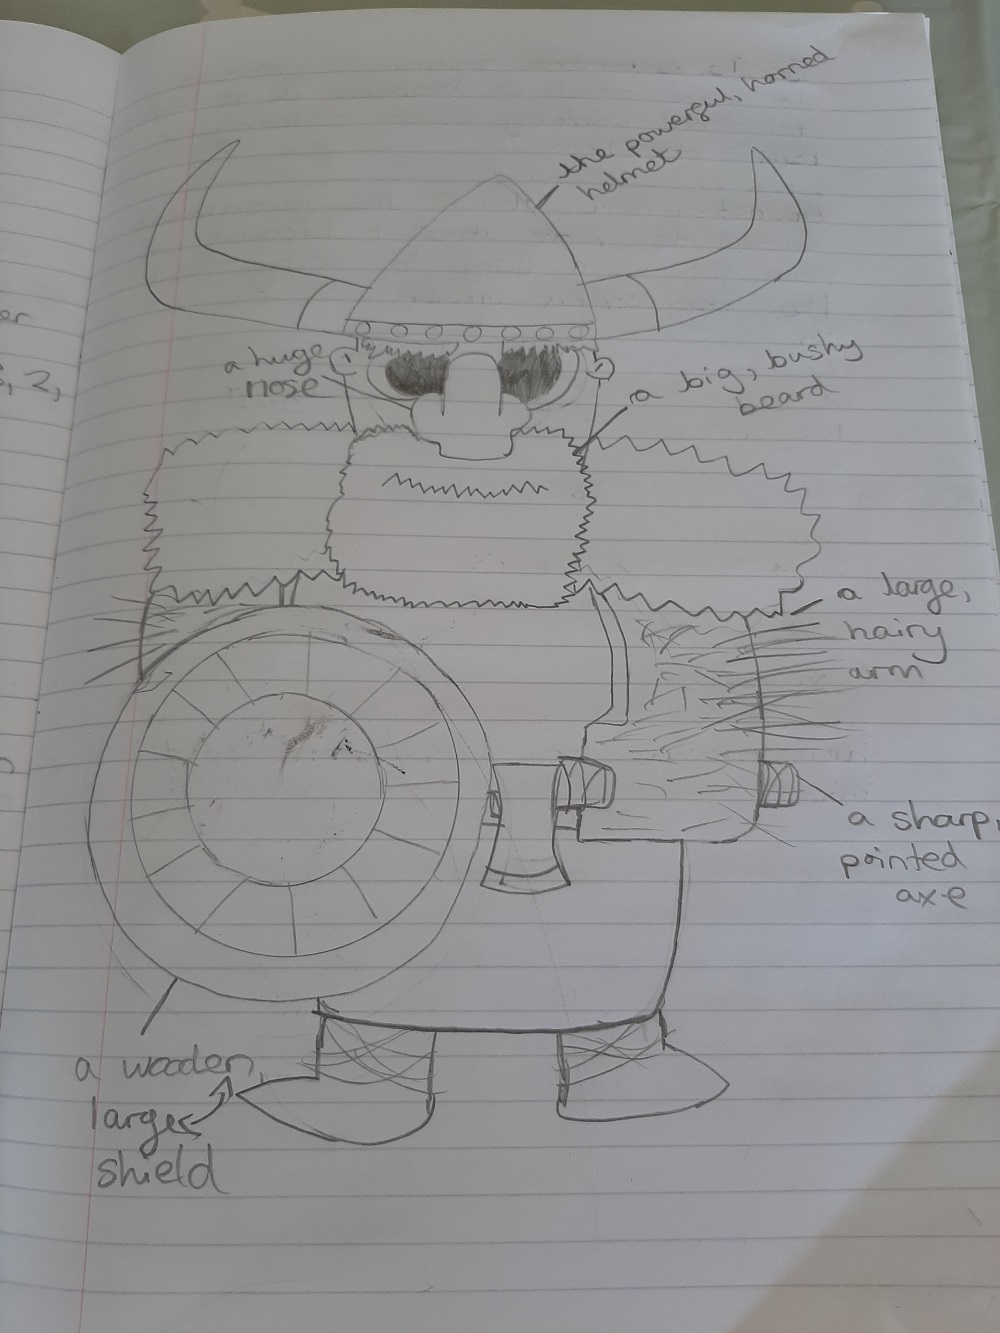 the powerful, horned
helmet
er
, 2,
a huge
nose
a big, bushy
beard
a large,
hairy
arm
a sharp,
pointed
axe
a wooden,
large
shield